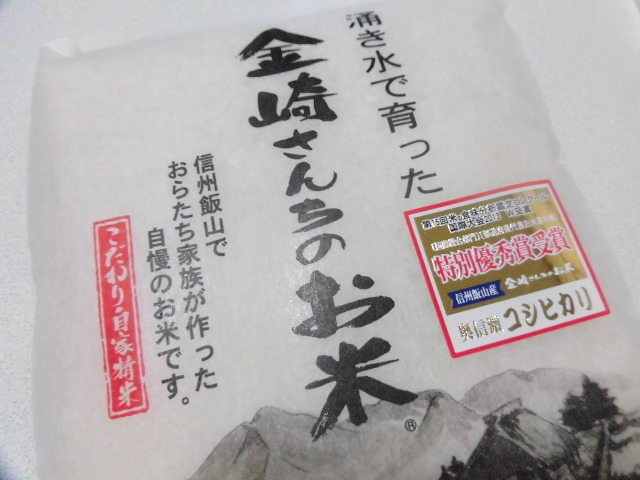 湧き水で育った
金崎さんちのお米
®
信州飯山で
おらたち家族が作った
自慢のお米です。
こだわり・自家精米
第15回米・食味分析鑑定コンクール
国際大会2013 W受賞
特別優秀賞受賞
信州飯山産
金崎さんちのお米
奥信濃 コシヒカリ